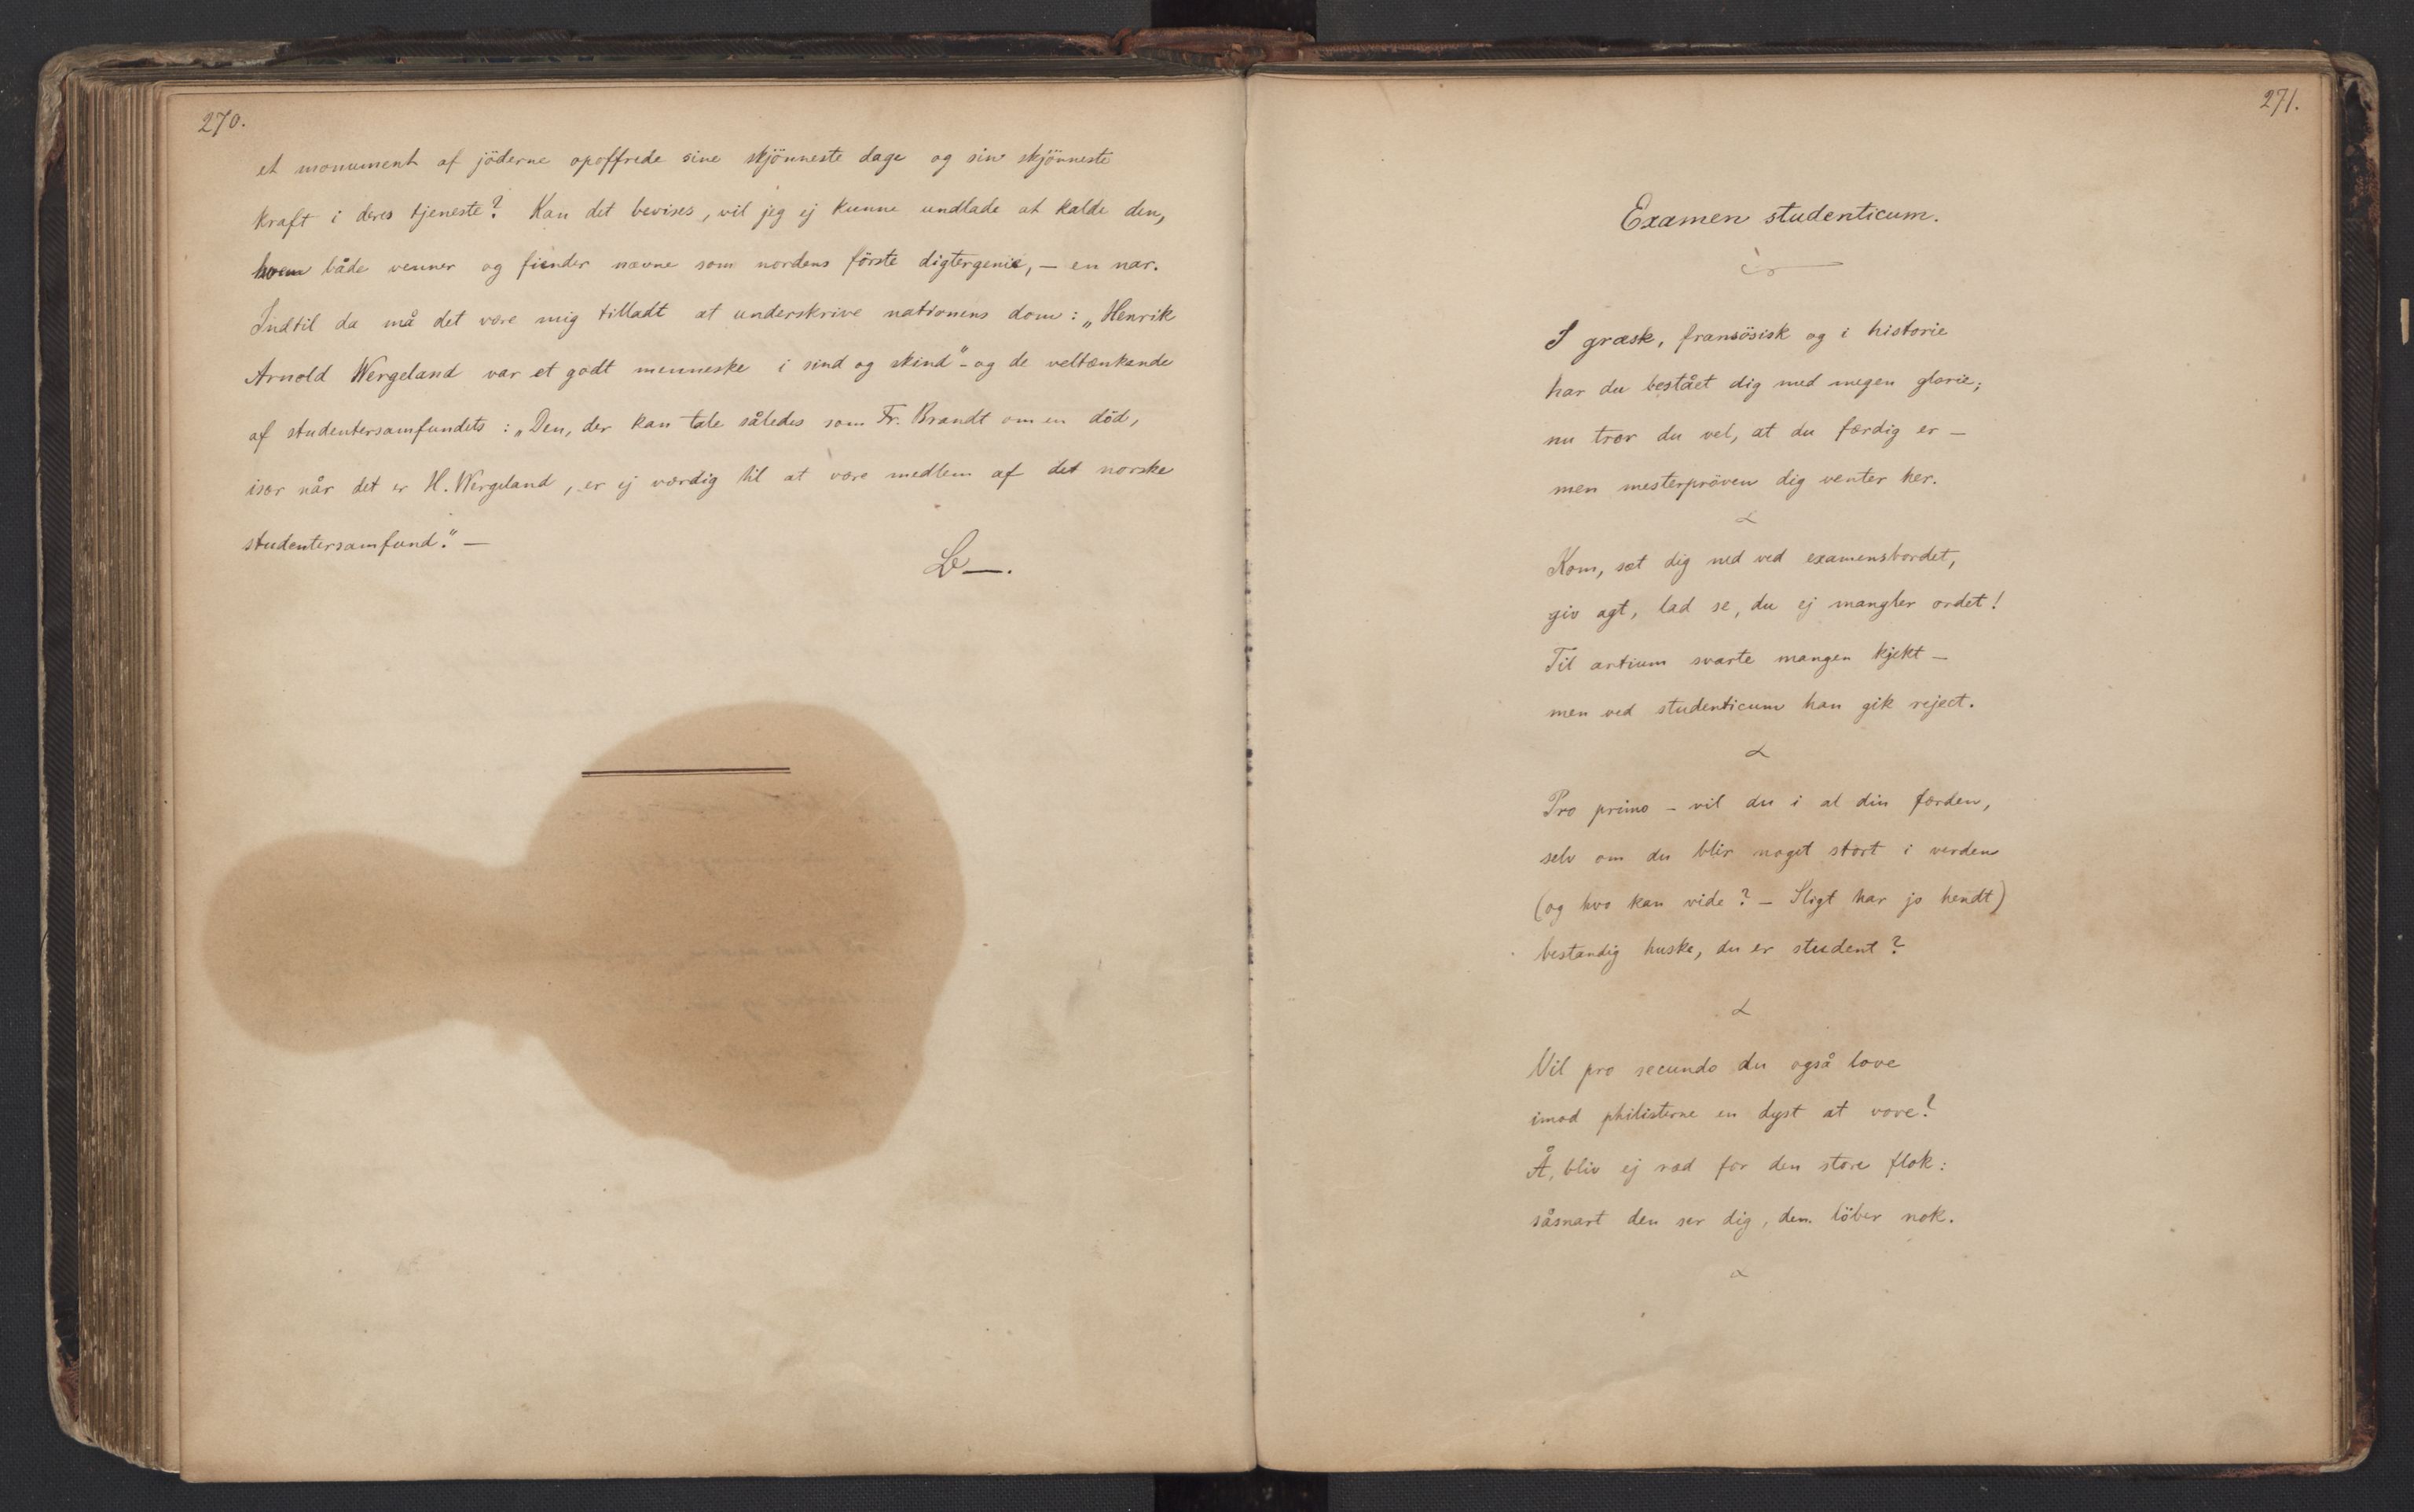 270.
et monument af jöderne opoffrede sine skjönneste dage og sin skjönneste
kraft i deres tjeneste? Kan det bevises, vil jeg ej kunne undlade at kalde den,
hvem både venner og fiender nævne som nordens förste digtergenie, — en nar.
Indtil da må det være mig tilladt at underskrive nationens dom: „Henrik
Arnold Wergeland var et godt menneske i sind og skind" - og de veltænkende
af studentersamfundets: „Den, der kan tale således som Fr. Brandt om en död,
især når det er H. Wergeland, er ej værdig til at være medlem af det norske
studentersamfund." —
271.
Examen studenticum.
I græsk, fransösisk og i historie
har du bestået dig med megen glorie;
nu tror du vel, at du færdig er —
men mesterpröven dig venter her.
Kom, sæt dig ned ved examensbordet,
giv agt, lad se, du ej mangler ordet!
Til artium svarte mangen kjekt —
men ved studenticum han gik reject.
Pro primo - vil du i al din færden,
selv om du blir noget stort i verden
(og hvo kan vide? — Sligt har jo hendt)
bestandig huske, du er student?
Vil pro secundo du også love
imod philisterne en dyst at vove?
Å, bliv ej ræd for den store flok:
såsnart den ser dig, den löber nok.